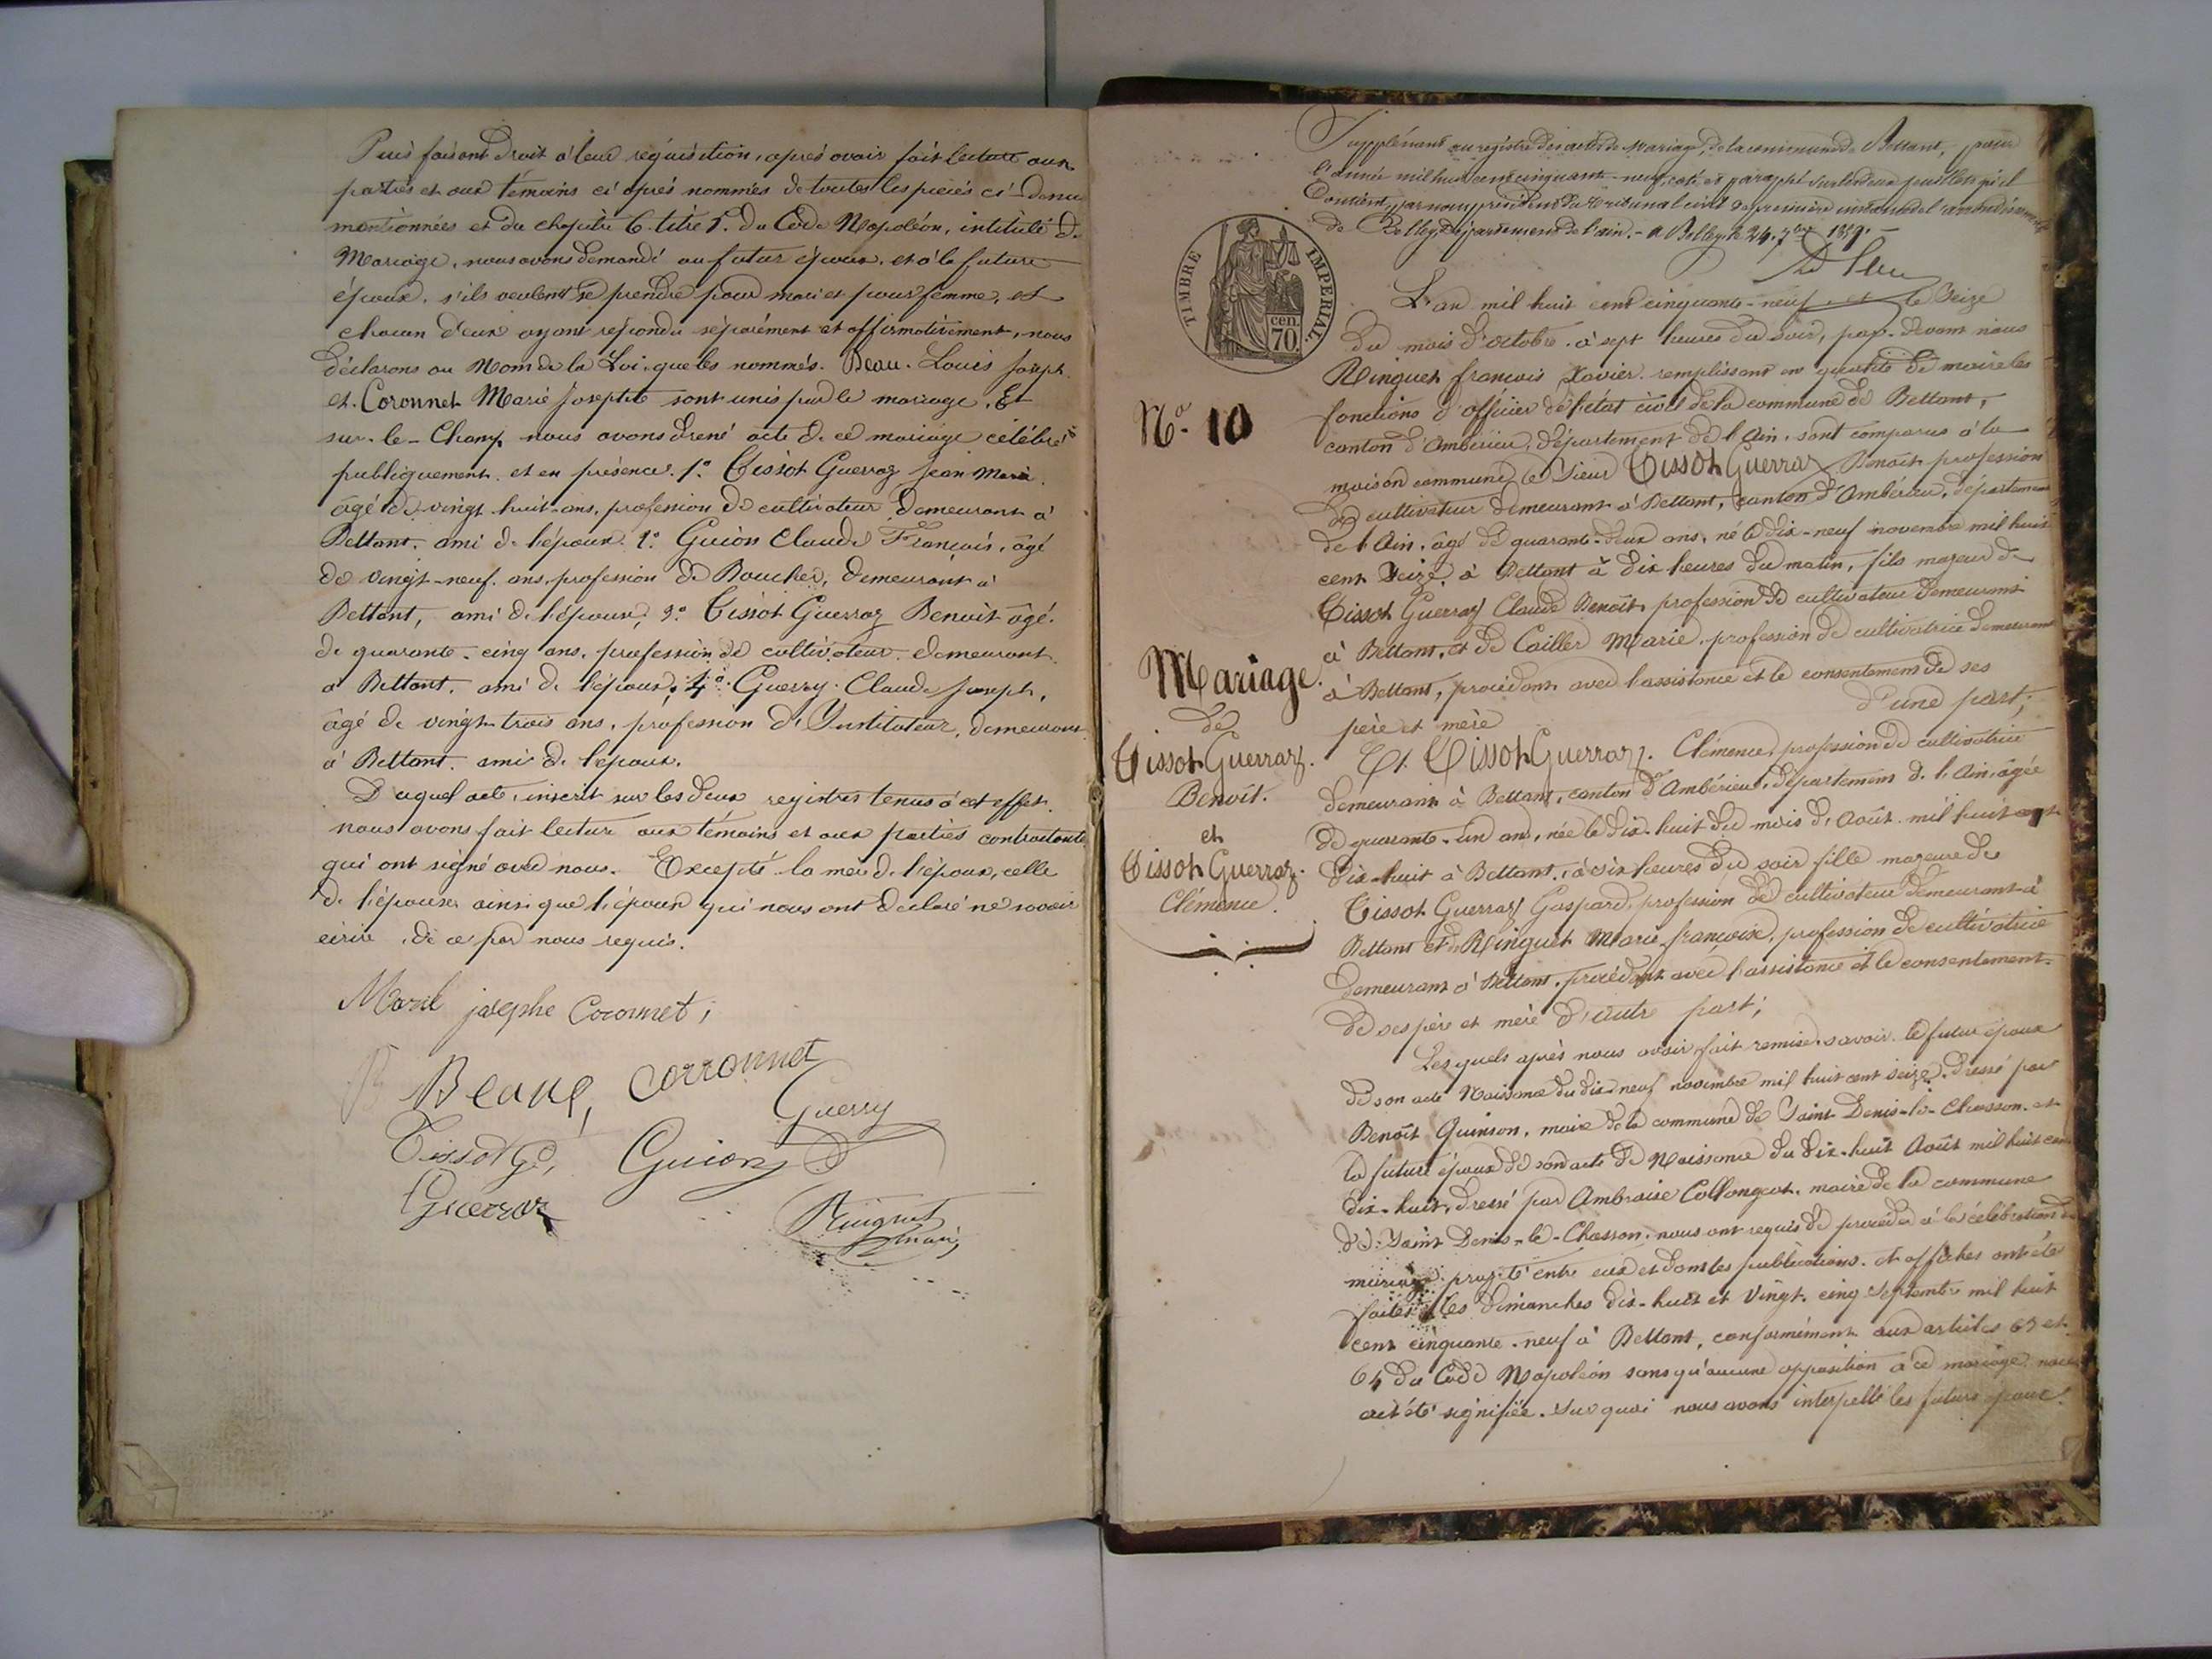 Puis faisant droit à leur réquisition, après avoir fait lecture aux
parties et aux témoins ci après nommés de toutes les pièces ci-dessus
mentionnées et du chapitre 6. titre 5. du Code Napoléon, intitulé du
Mariage, nous avons demandé au futur époux. et à la future
épouse. s'ils veulent se prendre pour mari et pour femme, et
chacun d'eux ayant répondu séparément et affirmativement, nous
déclarons au Nom de la Loi, que les nommés. Beau. Louis Joseph
et. Coronnet Marie Josephte sont unis par le mariage. Et
sur-le-Champ nous avons dressé acte de ce mariage célébré
publiquement. et en présence. 1.° Tissot Guerraz Jean Marie.
âgé de vingt huit ans, profession de cultivateur demeurant à
Bettant. ami de l'époux. 2.° Guion Claude François, âgé
de vingt-neuf. ans, profession de Boucher, demeurant à
Bettant, ami de l'époux, 3.° Tissot Guerraz Benoit âgé.
de quarante-cinq ans. profession de cultivateur. demeurant.
à Bettant. ami de l'époux, 4.° Guerry. Claude Joseph,
âgé de vingt-trois ans, profession d'Instituteur, demeurant
à Bettant. ami de l'époux.
Duquel acte, inscrit sur les deux registres tenus à cet effet.
nous avons fait lecture aux témoins et aux parties contractantes
qui ont signé avec nous. Excepté la mère de l'époux, celle
de l'épouse ainsi que l'époux qui nous ont déclaré ne savoir
écrire, de ce par nous requis.
josephe Coronnet,
Beaue, corronnet
Guerry
Tissot Ge, Guion
Guerraz
Ringuet
maire
Supplément au registre des actes de Mariage, de la commune de Bettant, pour
l'année mil huit cent cinquante-neuf, coté et paraphé sur les deux feuillets qu'il
Contient, par nous président du tribunal civil de première instance de l'arrondissement
de Belley, Département de l'ain. - à Belley, le 24. 7bre 1859. -
TIMBRE IMPERIAL.
cen.
70.
L'an mil huit cent cinquante-neuf et le Seize
du mois d'octobre. à sept heures du soir, par-devant nous
Ringuet françois Xavier. remplissant en qualité de maire les
N.° 10
fonctions d'officier de l'état civil de la commune de Bettant,
canton d'Ambérieu, département de l'Ain. sont comparus à la
maison commune, le Sieur Tissot Guerraz Benoit profession
de cultivateur demeurant à Bettant, canton d'Ambérieu, département
de l'Ain, âgé de quarante-deux ans, né le dix-neuf novembre mil huit
cent Seize, à Bettant à dix heures du matin, fils majeur de
Tissot Guerraz Claude Benoit profession de cultivateur demeurant
à Bettant, et de Cailler Marie. profession de cultivatrice demeurant
à Bettant, procédant avec l'assistance et le consentement de ses
père et mère d'une part,
Mariage.
de
Tissot Guerraz.
Benoit.
et
Tissot Guerraz.
Clémence.
Et. Tissot Guerraz. Clémence, profession de cultivatrice
demeurant à Bettant, canton d'Ambérieu, département de l'Ain, âgée
de quarante-un ans, née le dix-huit du mois d'Août. mil huit cent
Dix-huit à Bettant, à six heures du soir fille majeure de
Tissot Guerraz Gaspard, profession de cultivateur demeurant à
Bettant et de Ringuet Marie françoise, profession de cultivatrice
demeurant à Bettant, procédant avec l'assistance et le consentement.
de ses père et mère d'autre part;
Lesquels après nous avoir fait remise, savoir. le futur époux
de son acte Naissance du dix-neuf novembre mil huit cent Seize, dressé par
Benoit Quinson, maire de la commune de Saint Denis-le-Chosson. et
la future épouse de son acte de Naissance du dix-huit Août mil huit cent
dix-huit, dressé par Ambroise Collongeat, maire de la commune
de Saint Denis-le-Chosson, nous ont requis de procéder à la célébration du
mariage projeté entre eux et dont les publications. et affiches ont été
faites les dimanches dix-huit et Vingt-cinq Septembre mil huit
cent cinquante-neuf à Bettant, conformément aux articles 63 et
64 du Code Napoléon sans qu'aucune opposition à ce mariage nous
ait été signifiée. Sur quoi nous avons interpellé les futurs époux.